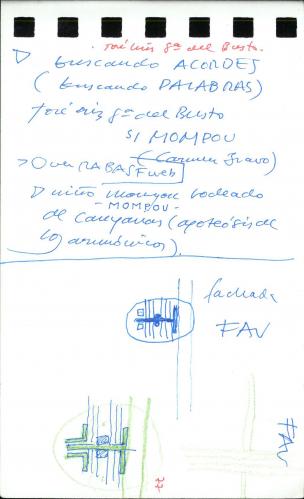 José Luis Gª del Busto.
buscando ACORDES
(buscando PALABRAS)
José Luis Gª del Busto
SI MOMPOU
(Carmen Bravo)
> Over RABASF web
niño rodeado
- MOMPOU -
de campanas (apoteósis de
los armónicos).
fachada
FAV
FAV